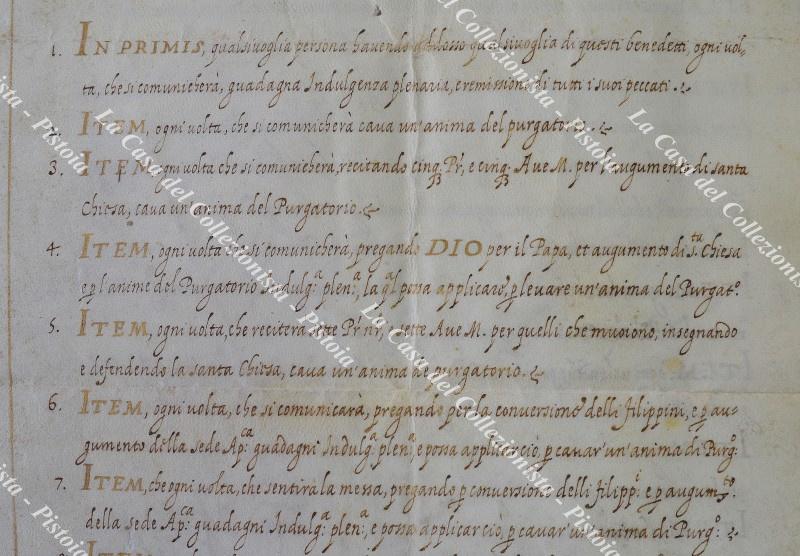 1. IN PRIMIS, qualsivoglia persona havendo addosso qualsivoglia di questi benedetti, ogni vol-
ta, che si comunicherà, guadagna Indulgenza plenaria, e remissione di tutti i suoi peccati.
2. ITEM, ogni volta, che si comunicherà cava un'anima del purgatorio.
3. ITEM, ogni volta che si comunicherà, recitando cinq; Pr̃, e cinq; Aue M. per l'augumento di santa
Chiesa, cava un'anima del Purgatorio.
4. ITEM, ogni volta che si comunicherà, pregando DIO per il Papa, et augumento di s.ta Chiesa
e p̱ l'anime del Purgatorio Indulg:a plen:a, la q̃l possa applicare, p̱ levare un'anima del Purgat.o
5. ITEM, ogni volta, che reciterà sette Pr̃ nr̃, e sette Aue M. per quelli che muoiono, insegnando
e defendendo la santa Chiesa, cava un'anima de purgatorio.
6. ITEM, ogni volta, che si comunicarà, pregando per la conversione delli filippini, e p̱ au-
gumento della sede Ap:ca guadagni Indulg:a plen:a e possa applicar ciò, p̱ cavar' un'anima di Purg:o
7. ITEM, che ogni volta, che sentirà la messa, pregando p̱ conversione delli filipp:i e p̱ augum:to
della sede Ap:ca guadagni Indulg:a plen:a, e possa applicar ciò, p̱ cavar' un'anima di Purg:o
La Casa del Collezionista - Pistoia